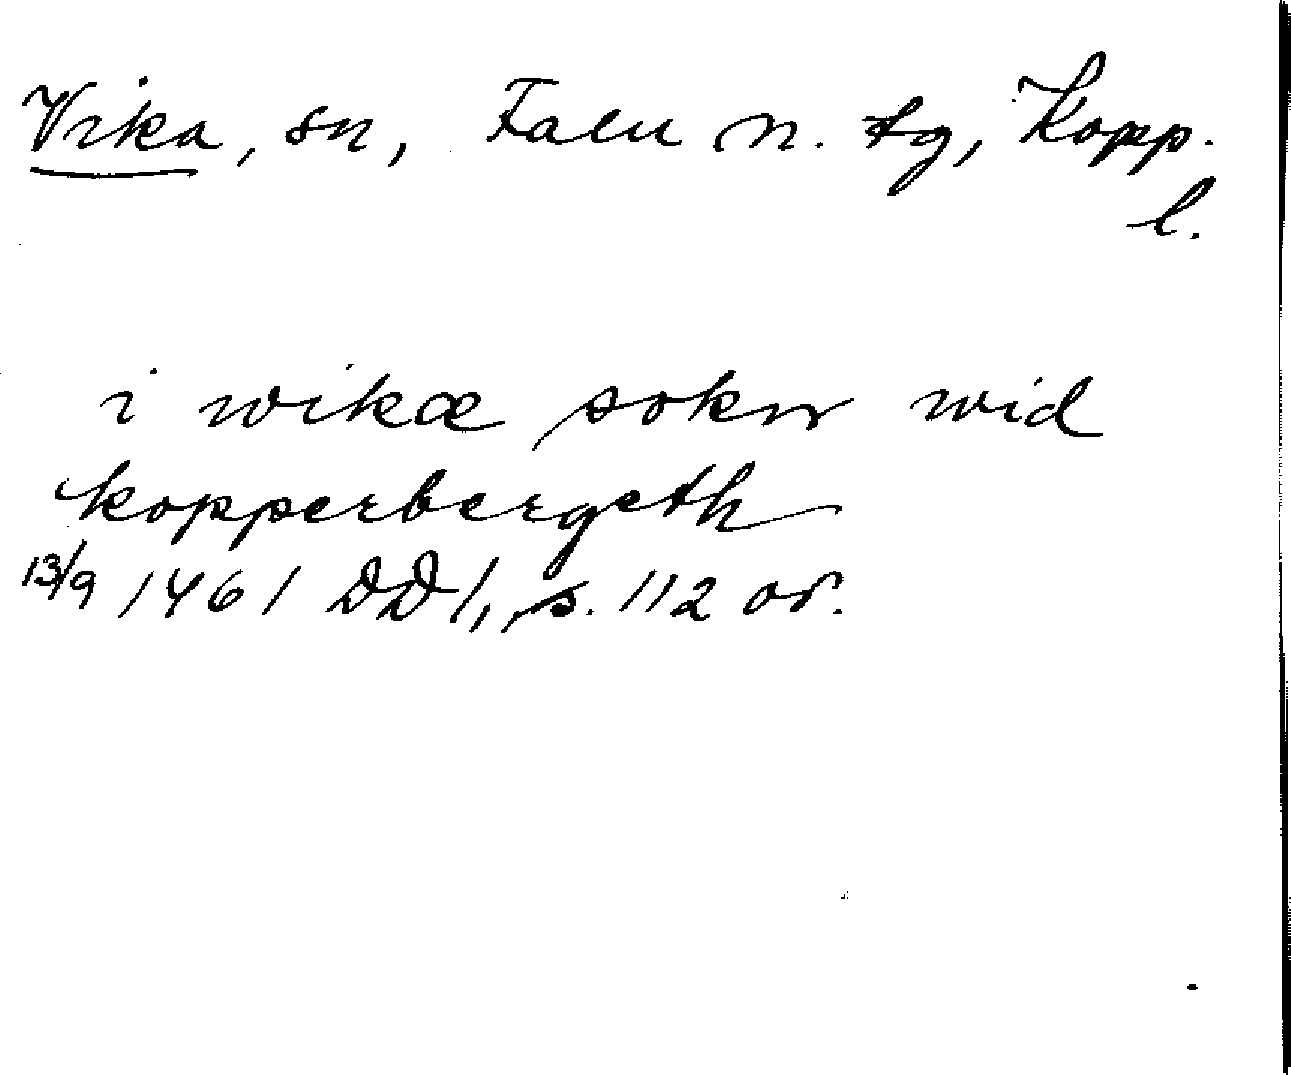 Vika, sn, Falu n. tg, Kopp.
l.
i wikæ sokn wid
kopperbergeth
13/9 1461 DD 1, s. 112 or.